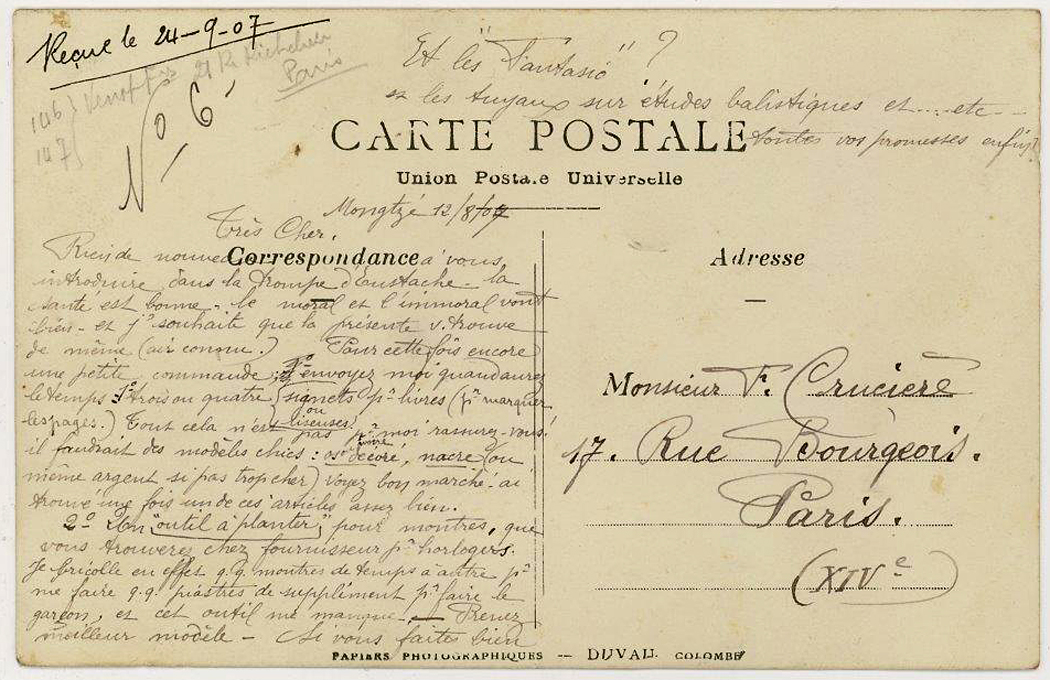 Reçue le 24-9-07
21 Re Richelieu
Paris
146
147
No 6-
Et les "Fantasio" ?
et les tuyaux sur études balistiques et .... etc
toutes vos promesses enfin?
CARTE POSTALE
Union Postale Universelle
Mongtzé 12/8/07
Très Cher,
Correspondance
Rien de nouveau à vous
introduire dans la trompe d'Eustache - la
santé est bonne - le moral et l'immoral vont
bien - et je souhaite que la présente v. trouve
de même (air connu.) Pour cette fois encore
une petite commande : envoyez moi quand aurez
le temps : 1º trois ou quatre signets pr livres (pr marquer
les pages.) ou liseuses! Tout cela n'est pas pr moi rassurez-vous!
il faudrait des modèles chics : os décoré, ivoire, nacre (ou
même argent si pas trop cher) voyez bon marché - ai
trouvé une fois un de ces articles assez bien.
2º Un "outil à planter" pour montres, que
vous trouverez chez fournisseur pr horlogers.
Je bricolle en effet q.q. montres de temps à autre pr
me faire q.q. piastres de supplément pr faire le
garçon, et cet outil me manque - Prenez
meilleur modèle - Si vous faites bien
Adresse
Monsieur F. Crucière
17. Rue Bourgeois.
Paris.
(XIVe)
PAPIERS PHOTOGRAPHIQUES — DUVAU. COLOMBE